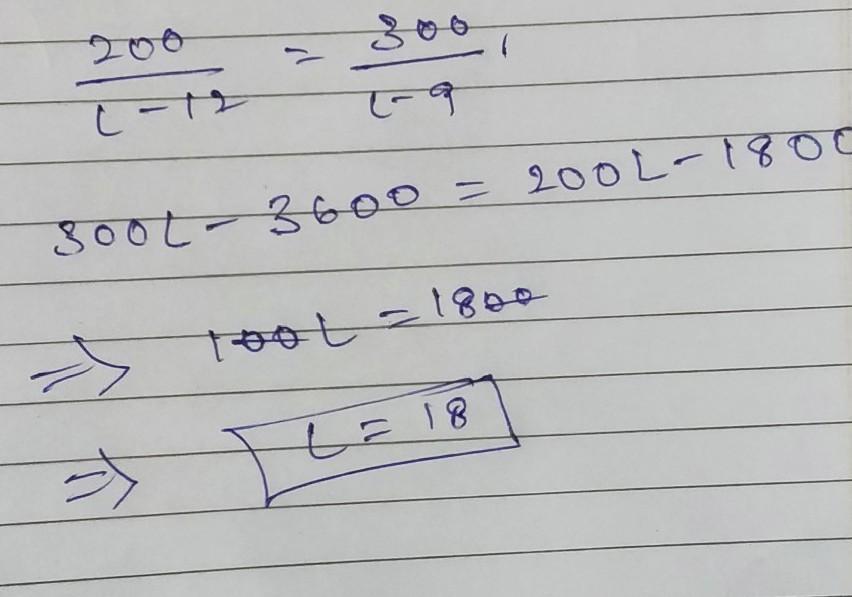 200/L-12 = 300/L-9,
300L - 3600 = 200L - 1800
⇒ 100L = 1800
⇒ L = 18